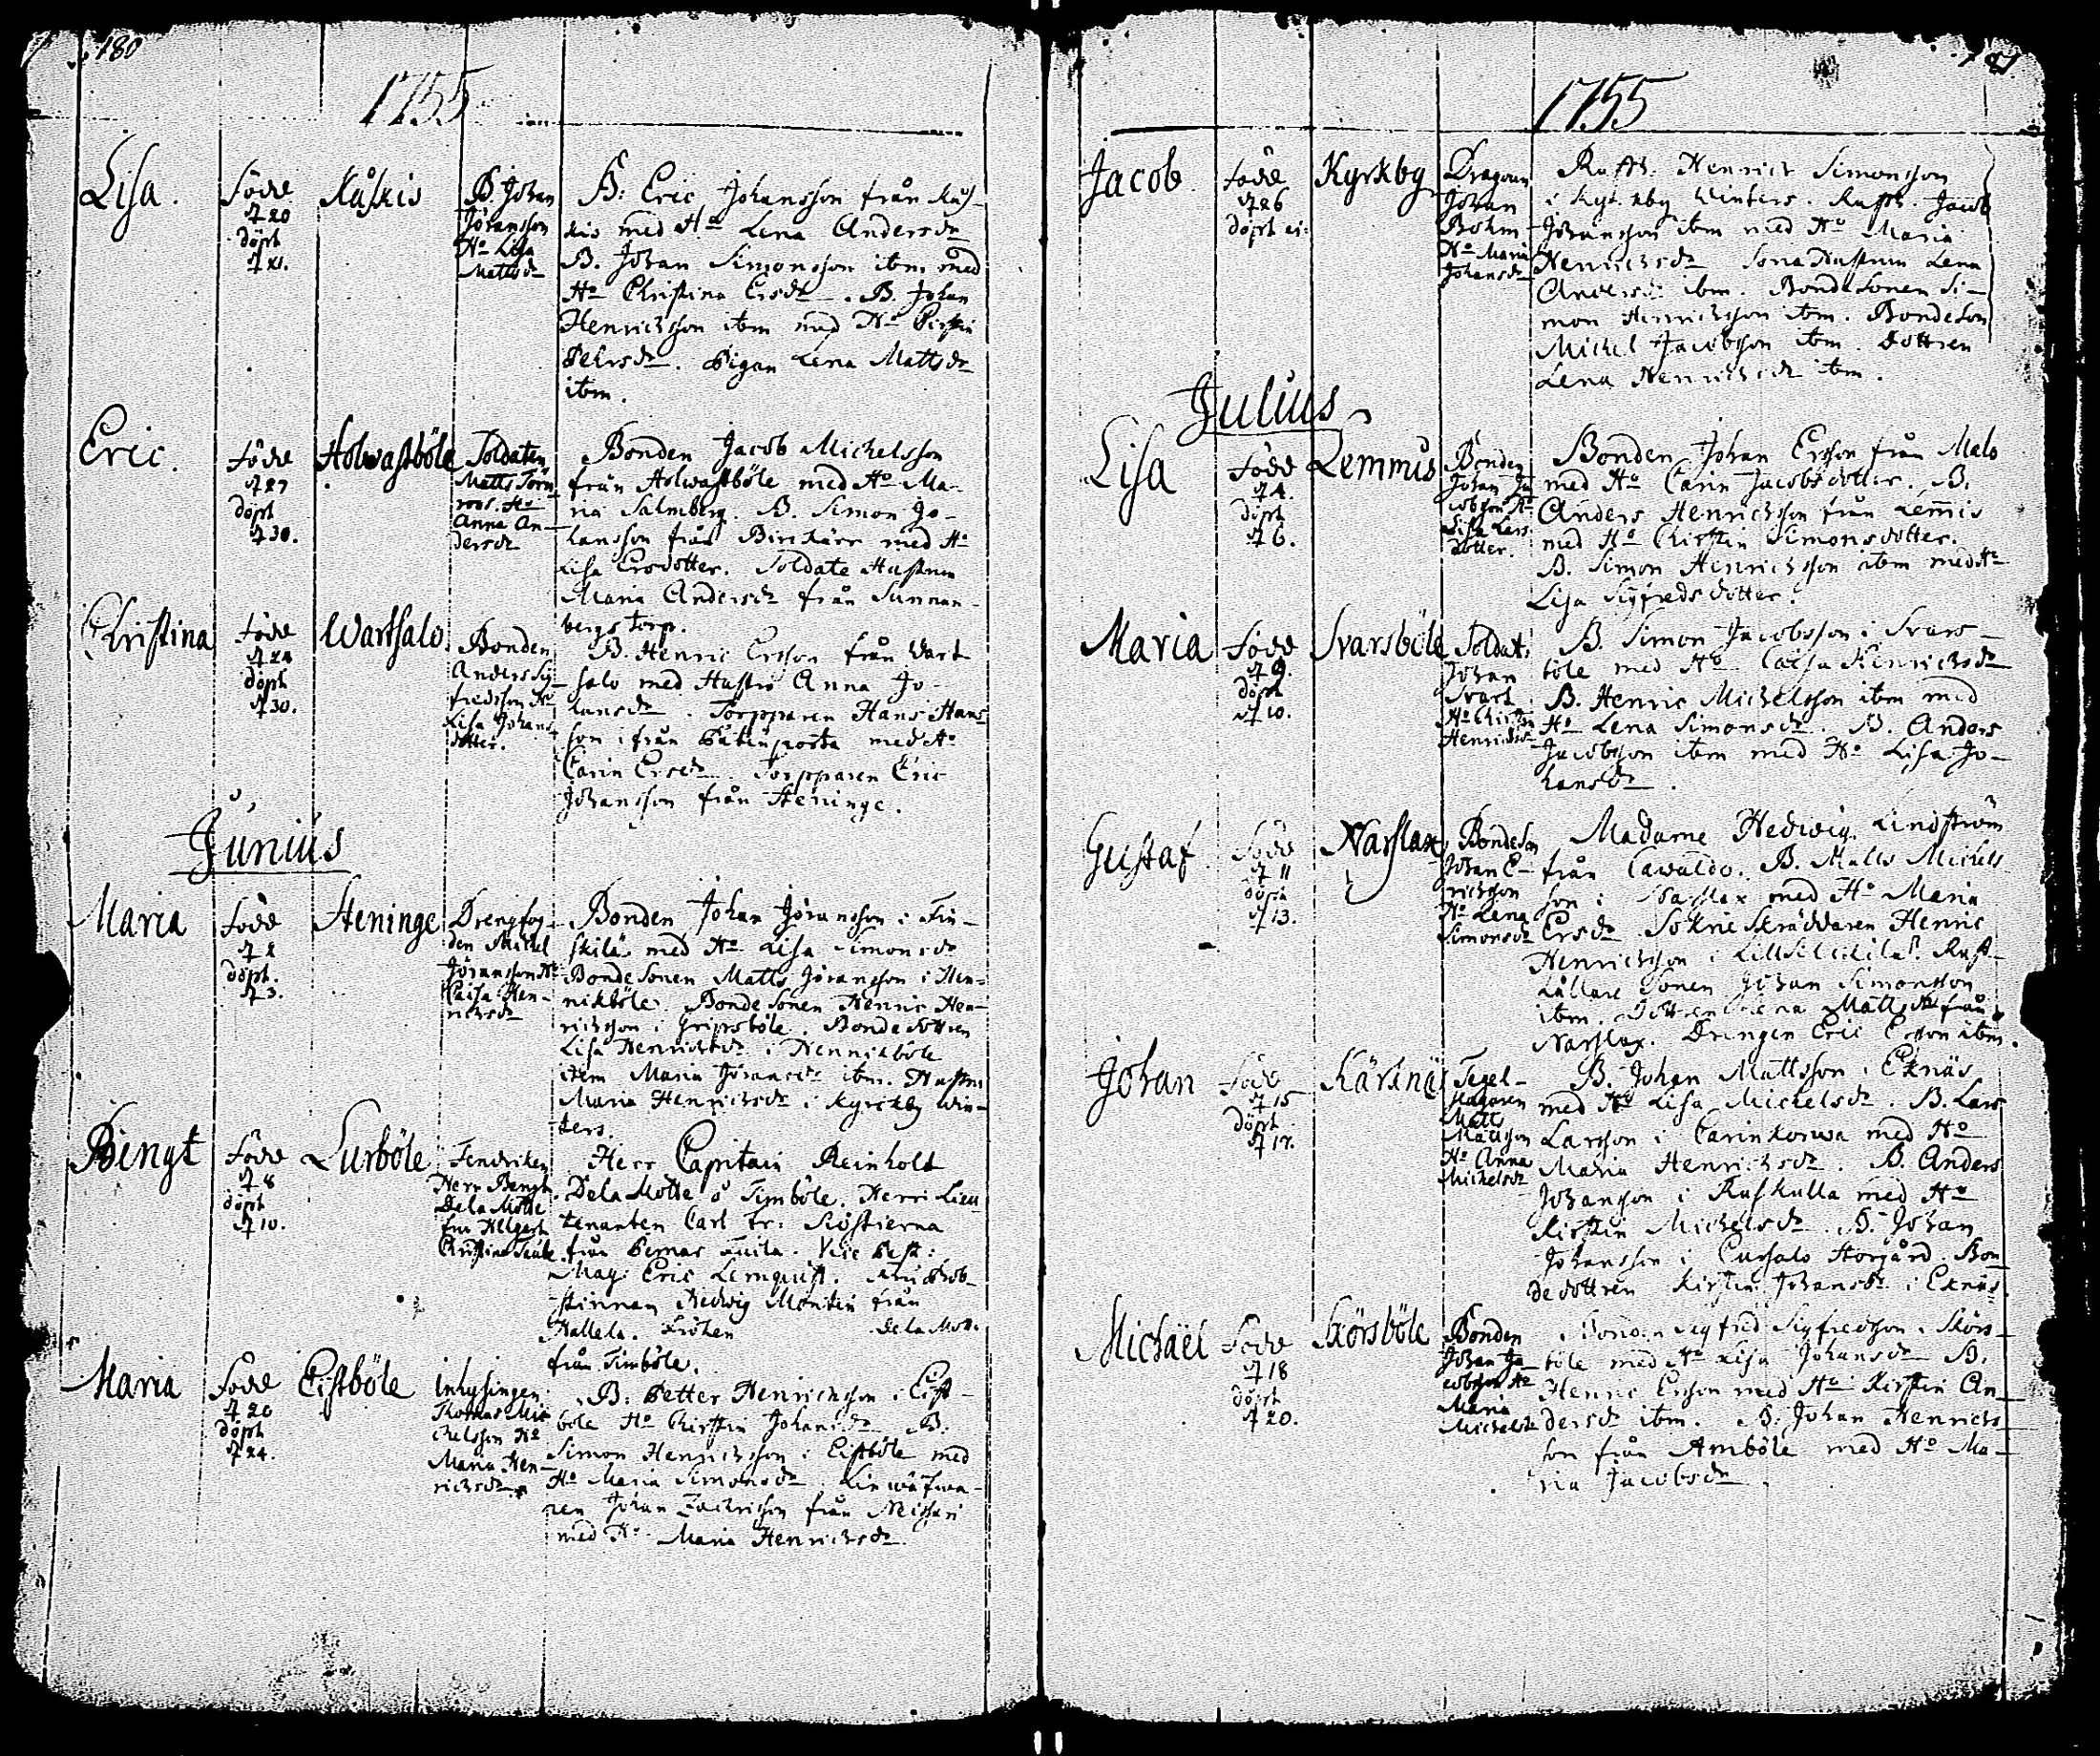 180
1755
Lisa. Född d. 20 döpt d. 21. Kåskis B. Johan Jöransson Ho Lisa Mattsdr
B: Eric Johansson från Kås-
kis med Ho Lena Andersdr
B. Johan Simonsson ibm med
Ho Christina Ersdr. B. Johan
Henricksson ibm med Ho Kirstin
Pehrsdr. Pigan Lena Mattsdr
ibm.
Eric. Född d. 27 döpt d. 30. Holwastböle Soldaten Matts Törnroos. Ho Anna Andersdr
Bonden Jacob Michelsson
från Holwastböle med Ho Ma-
ria Salmberg. B. Simon Jo-
hansson från Birckärr med Ho
Lisa Ersdotter. Soldate Hustrun
Maria Andersdr från Sunnan-
bergs torp.
Christina Född d. 24 döpt d. 30. Wartsalo Bonden Anders Sigfredsson Ho Lisa Johansdotter.
B. Henric Ersson från Wart-
salo med Hustro Anna Jo-
hansdr. Torpparen Hans Hans-
son ifrån med Ho
Carin Ersdr. Torpparen Eric
Johansson från Heninge.
Junius
Maria Född d. 2 döpt. d. 3. Heninge Drengfogden Michel Jöransson Ho Caisa Henricsdr
Bonden Johan Jöransson i Fin-
skilä med Ho Lisa Simonsdr
Bondesonen Matts Jöransson i Hen-
nikböle. Bondesonen Henric Hen-
ricsson i Gripsböle. Bondedottren
Lisa Henricsdr i Hennikböle
item Maria Jöransdr ibm. Hustru
Maria Henricsdr i Kyrckby Win-
ters.
Bengt Född d. 8 döpt d. 10. Lurböle Fendriken Herr Bengt De la Motte fru Helgert Christina
Herr Capitain Reinholt
De la Motte å Timböle. Herr Lieu-
tenanten Carl Fr: Siöstierna
från Pemar . Vice Past:
Mag: Eric Lemquist.
Hedwig Montin från
Hallela. Fröken De la Motte
från Timböle.
Maria Född d. 20 döpt d. 24. Eistböle Inhysingen Thomas Michelsson Ho Maria Henricsdr
B: Petter Henricksson i Eist-
böle Ho Chirstin Johansdr B.
Simon Henricksson i Eistböle med
Ho Maria Simonsdr. Linwäfwa-
ren Johan Zachrisson från
med Ho Maria Henricsdr.
181
1755
Jacob. Född d. 26 döpt Kyrkby Dragoun Johan Böhm Ho Maria Johansdr
Rusth. Henrich Simonsson
i Kyrckby Winters. Rusth. Jacob
Johansson ibm med Ho Maria
Henricsdr Sona Hustrun Lena
Andersdr ibm. Bondesonen Si-
mon Henricsson ibm. Bondeson
Michel Jacobsson ibm. Dottren
Lena Henricsdr ibm.
Julius
Lisa Född d. 4. döpt d. 6. Lemmis Bonden Johan Jacobsson Ho Lisa Larsdotter.
Bonden Johan Ersson från Malo
med Ho Carin Jacobsdotter. B.
Anders Henricsson från Lem̄is
med Ho Chirstin Simonsdotter.
B. Simon Henricsson ibm med Ho
Lisa Sigfredsdotter.
Maria Född d. 9. döpt d. 10. Svarsböle Soldat: Johan Svart Ho Chirstin Henricsdr
B. Simon Jacobsson i Svars-
böle med Ho Caisa Henricsdr
B. Henric Michelsson ibm med
Ho Lena Simonsdr. B. Anders
Jacobsson ibm med Ho Lisa Jo-
hansdr.
Gustaf Född d. 11 döpt d. 13. Narslax Bondeson Johan Ericsson Ho Lena Simonsdr
Madame Hedwig Lindström
från Cawaldo. B. Matts Michels
son i Narslax med Ho Maria
Ersdr Sockne Skräddaren Henric
Henricsson i . Rust-
hållare Sonen Johan Simonsson
ibm. Dottren Lena Mattsdr från
Narslax. Drengen Eric Ersson ibm.
Johan Född d. 15 döpt d. 17. Kärknäs Tegelslagaren Matts Mattsson Ho Anna Michelsdr
B. Johan Mattsson i Eknäs
med Ho Lisa Michelsdr. B. Lars
Larsson i Carinkorwa med Ho
Maria Henricsdr. B. Anders
Johansson i Ruskulla med Ho
Kirstin Michelsdr. B. Johan
Johansson i Cussalo Storgård. Bon-
dedottren Kirstin Johansdr i Eknäs.
Michäel Född d. 18 döpt d. 20. Skörsböle Bonden Johan Jacobsson Ho Maria Michelsdr
Bonden Sigfrid Sigfredsson i Skörs-
böle med Ho Lisa Johansdr B.
Henric Ersson med Ho Kirstin An-
dersdr ibm. B. Johan Henrics
son från Amböle med Ho Ma-
ria Jacobsdr.